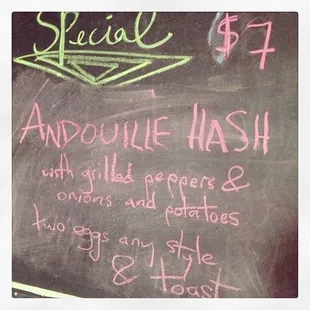 Special
$7
ANDOUILLE HASH
with grilled peppers &
onions and potatoes
two eggs any style
& toast